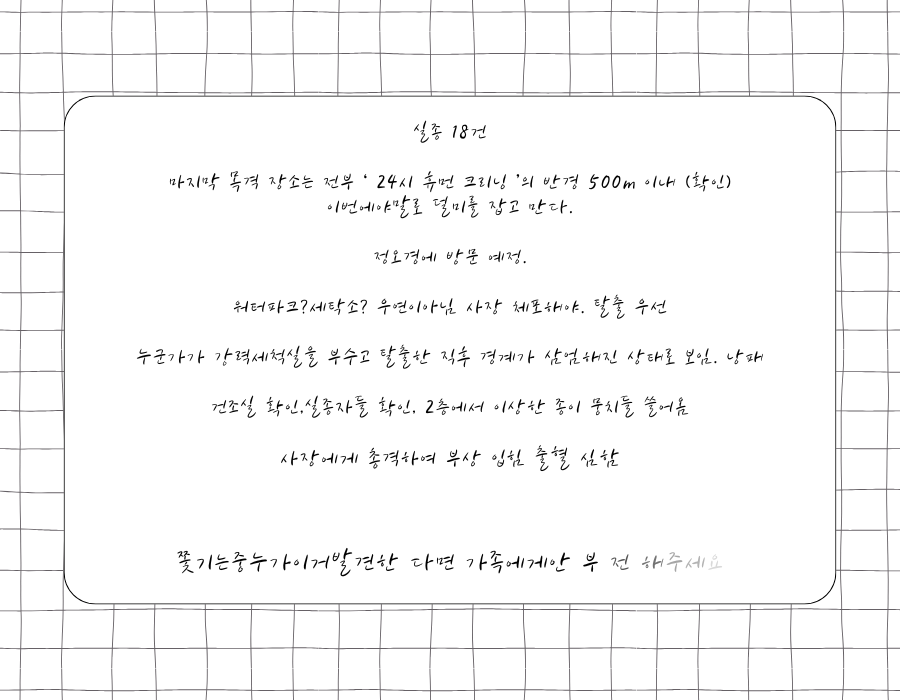 실종 18건
마지막 목격 장소는 전부 ‘ 24시 휴먼 크리닝 ’의 반경 500m 이내 (확인)
이번에야말로 덜미를 잡고 만다.
정오경에 방문 예정.
워터파크?세탁소? 우연이아님 사장 체포해야. 탈출 우선
누군가가 강력세척실을 부수고 탈출한 직후 경계가 삼엄해진 상태로 보임. 낭패
건조실 확인.실종자들 확인. 2층에서 이상한 종이 뭉치들 쓸어옴
사장에게 총격하여 부상 입힘 출혈 심함
쫓기는중누가이거발견한 다면 가족에게안 부 전 해주세요